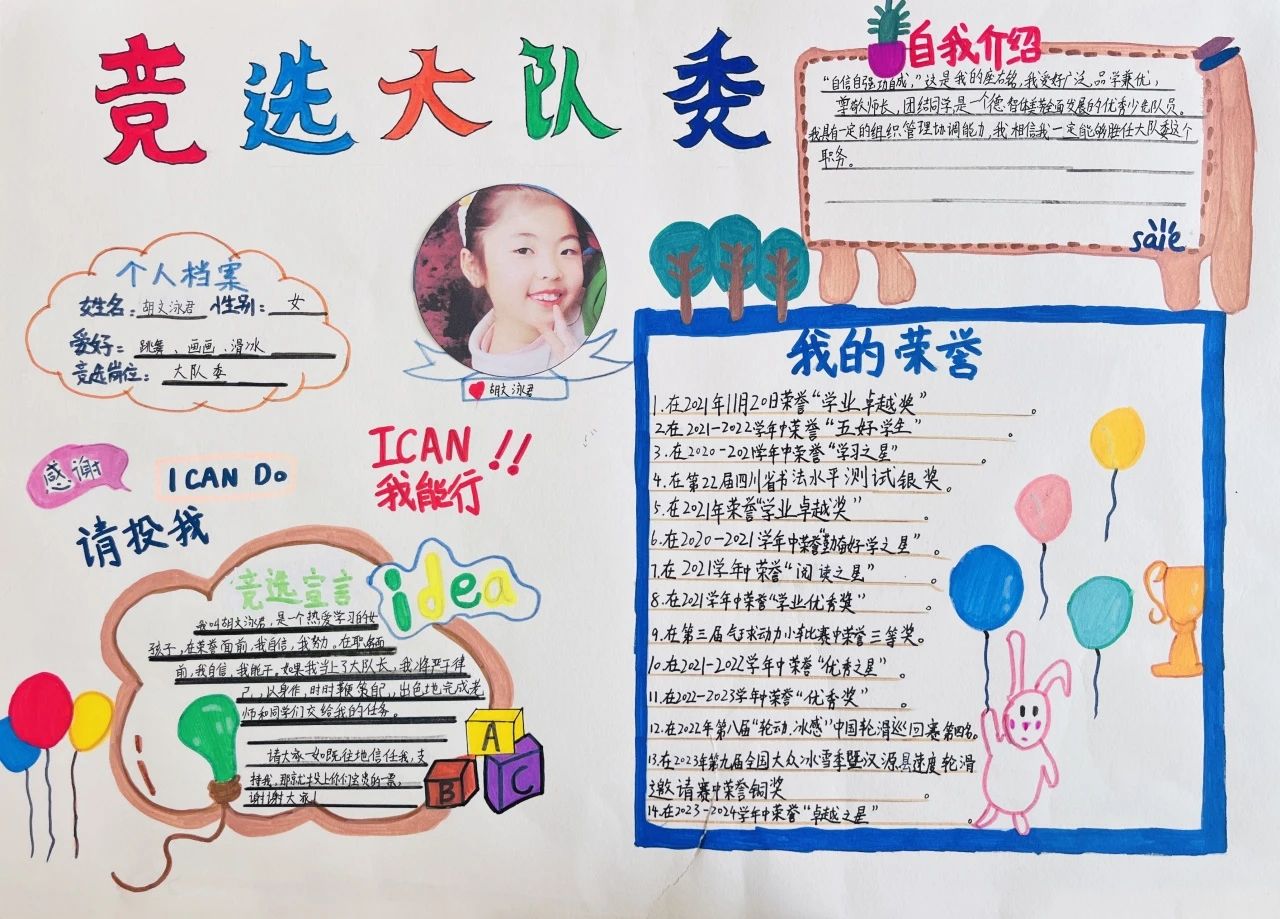 竞选大队委
自我介绍
“自信自强功自成,”这是我的座右铭,我爱好广泛,品学兼优,
尊敬师长,团结同学是一个德智体美劳全面发展的优秀少先队员。
我具有一定的组织管理协调能力,我相信我一定能够胜任大队委这个
职务。
个人档案
姓名:胡文泳君 性别:女
爱好:跳舞、画画、滑冰
竞选岗位:大队委
胡文泳君
感谢
I CAN DO
请投我
ICAN!!
我能行
竞选宣言
idea
我叫胡文泳君,是一个热爱学习的女
孩子,在荣誉面前,我自信,我努。在职务面
前,我自信,我能干。如果我当上了大队长,我将严于律
己,以身作,时时鞭策自己,出色地完成老
师和同学们交给我的任务。
请大家一如既往地信任我,支
持我,那就投上你们宝贵的一票,
谢谢大家!
A
B
C
我的荣誉
1.在2021年11月20日荣誉“学业卓越奖”。
2.在2021-2022学年中荣誉“五好学生”。
3.在2020-2021学年中荣誉“学习之星”。
4.在第22届四川省书法水平测试银奖。
5.在2021年荣誉“学业卓越奖”。
6.在2020-2021学年中荣誉“勤奋好学之星”。
7.在2021学年中荣誉“阅读之星”。
8.在2021学年中荣誉“学业优秀奖”。
9.在第三届气球动力小车比赛中荣誉三等奖。
10.在2021-2022学年中荣誉“优秀之星”。
11.在2022-2023学年中荣誉“优秀奖”。
12.在2022年第八届“轮动.冰感”中国轮滑巡回赛第四名。
13.在2023年第九届全国大众冰雪季暨汉源县速度轮滑
邀请赛中荣誉铜奖。
14.在2023-2024学年中荣誉“卓越之星”。